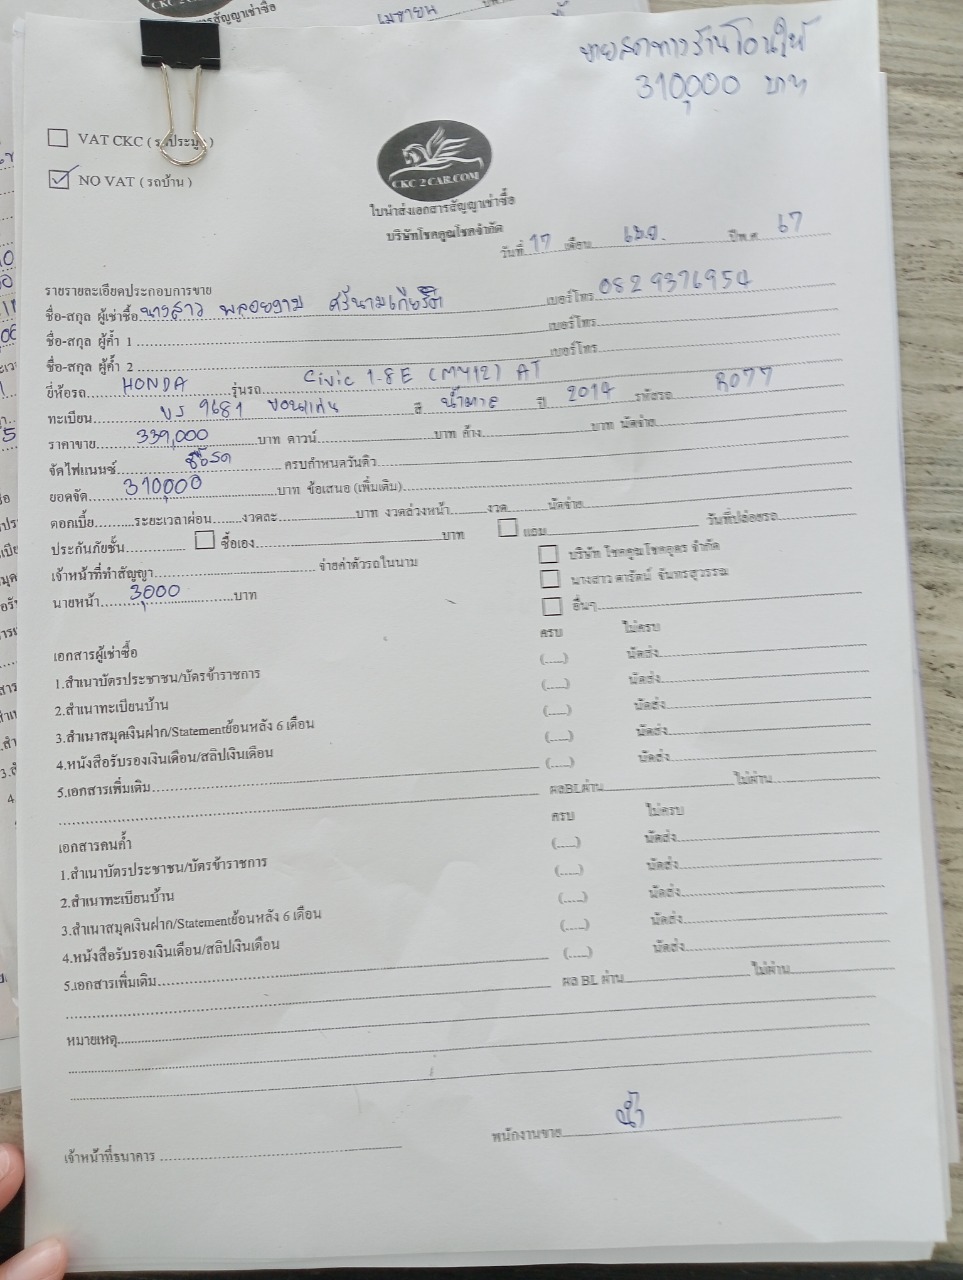 ขายสดทางร้านโอนให้
310,000 บาท
VAT CKC (
NO VAT (รถบ้าน)
CKC 2 CAR.COM
ใบนำส่งเอกสารสัญญาเช่าซื้อ
บริษัทโชคคูณโชคจำกัด
วันที่ 17 เดือน เม.ย. ปีพ.ศ. 67
รายรายละเอียดประกอบการขาย
ชื่อ-สกุล ผู้เช่าซื้อ นางสาว พลอยงาม เบอร์โทร 082 9376954
ชื่อ-สกุล ผู้ค้ำ 1 เบอร์โทร
ชื่อ-สกุล ผู้ค้ำ 2 เบอร์โทร
ยี่ห้อรถ HONDA รุ่นรถ Civic 1.8 E (MY12) AT
ทะเบียน 9681 ขอนแก่น สี น้ำตาล ปี 2014 รหัสรถ R077
ราคาขาย 339,000 บาท ดาวน์ บาท ค้าง บาท นัดจ่าย
จัดไฟแนนซ์ ซื้อสด ครบกำหนดวันคิว
ยอดจัด 310,000 บาท ข้อเสนอ (เพิ่มเติม)
ดอกเบี้ย ระยะเวลาผ่อน งวดละ บาท งวดล่วงหน้า งวด นัดจ่าย
ประกันภัยชั้น ซื้อเอง บาท แถม วันที่ปล่อยรถ
เจ้าหน้าที่ทำสัญญา จ่ายค่าตัวรถในนาม บริษัท โชคคูณโชคอุดร จำกัด
นางสาว ดารัตน์ จันทรสุวรรณ
นายหน้า 3,000 บาท อื่นๆ
เอกสารผู้เช่าซื้อ ครบ ไม่ครบ
1.สำเนาบัตรประชาชน/บัตรข้าราชการ (.....) นัดส่ง
2.สำเนาทะเบียนบ้าน (.....) นัดส่ง
3.สำเนาสมุดเงินฝาก/Statementย้อนหลัง 6 เดือน (.....) นัดส่ง
4.หนังสือรับรองเงินเดือน/สลิปเงินเดือน (.....) นัดส่ง
5.เอกสารเพิ่มเติม (.....) นัดส่ง
ผลBLผ่าน ไม่ผ่าน
เอกสารคนค้ำ ครบ ไม่ครบ
1.สำเนาบัตรประชาชน/บัตรข้าราชการ (.....) นัดส่ง
2.สำเนาทะเบียนบ้าน (.....) นัดส่ง
3.สำเนาสมุดเงินฝาก/Statementย้อนหลัง 6 เดือน (.....) นัดส่ง
4.หนังสือรับรองเงินเดือน/สลิปเงินเดือน (.....) นัดส่ง
5.เอกสารเพิ่มเติม (.....) นัดส่ง
ผล BL ผ่าน ไม่ผ่าน
หมายเหตุ
เจ้าหน้าที่ธนาคาร พนักงานขาย